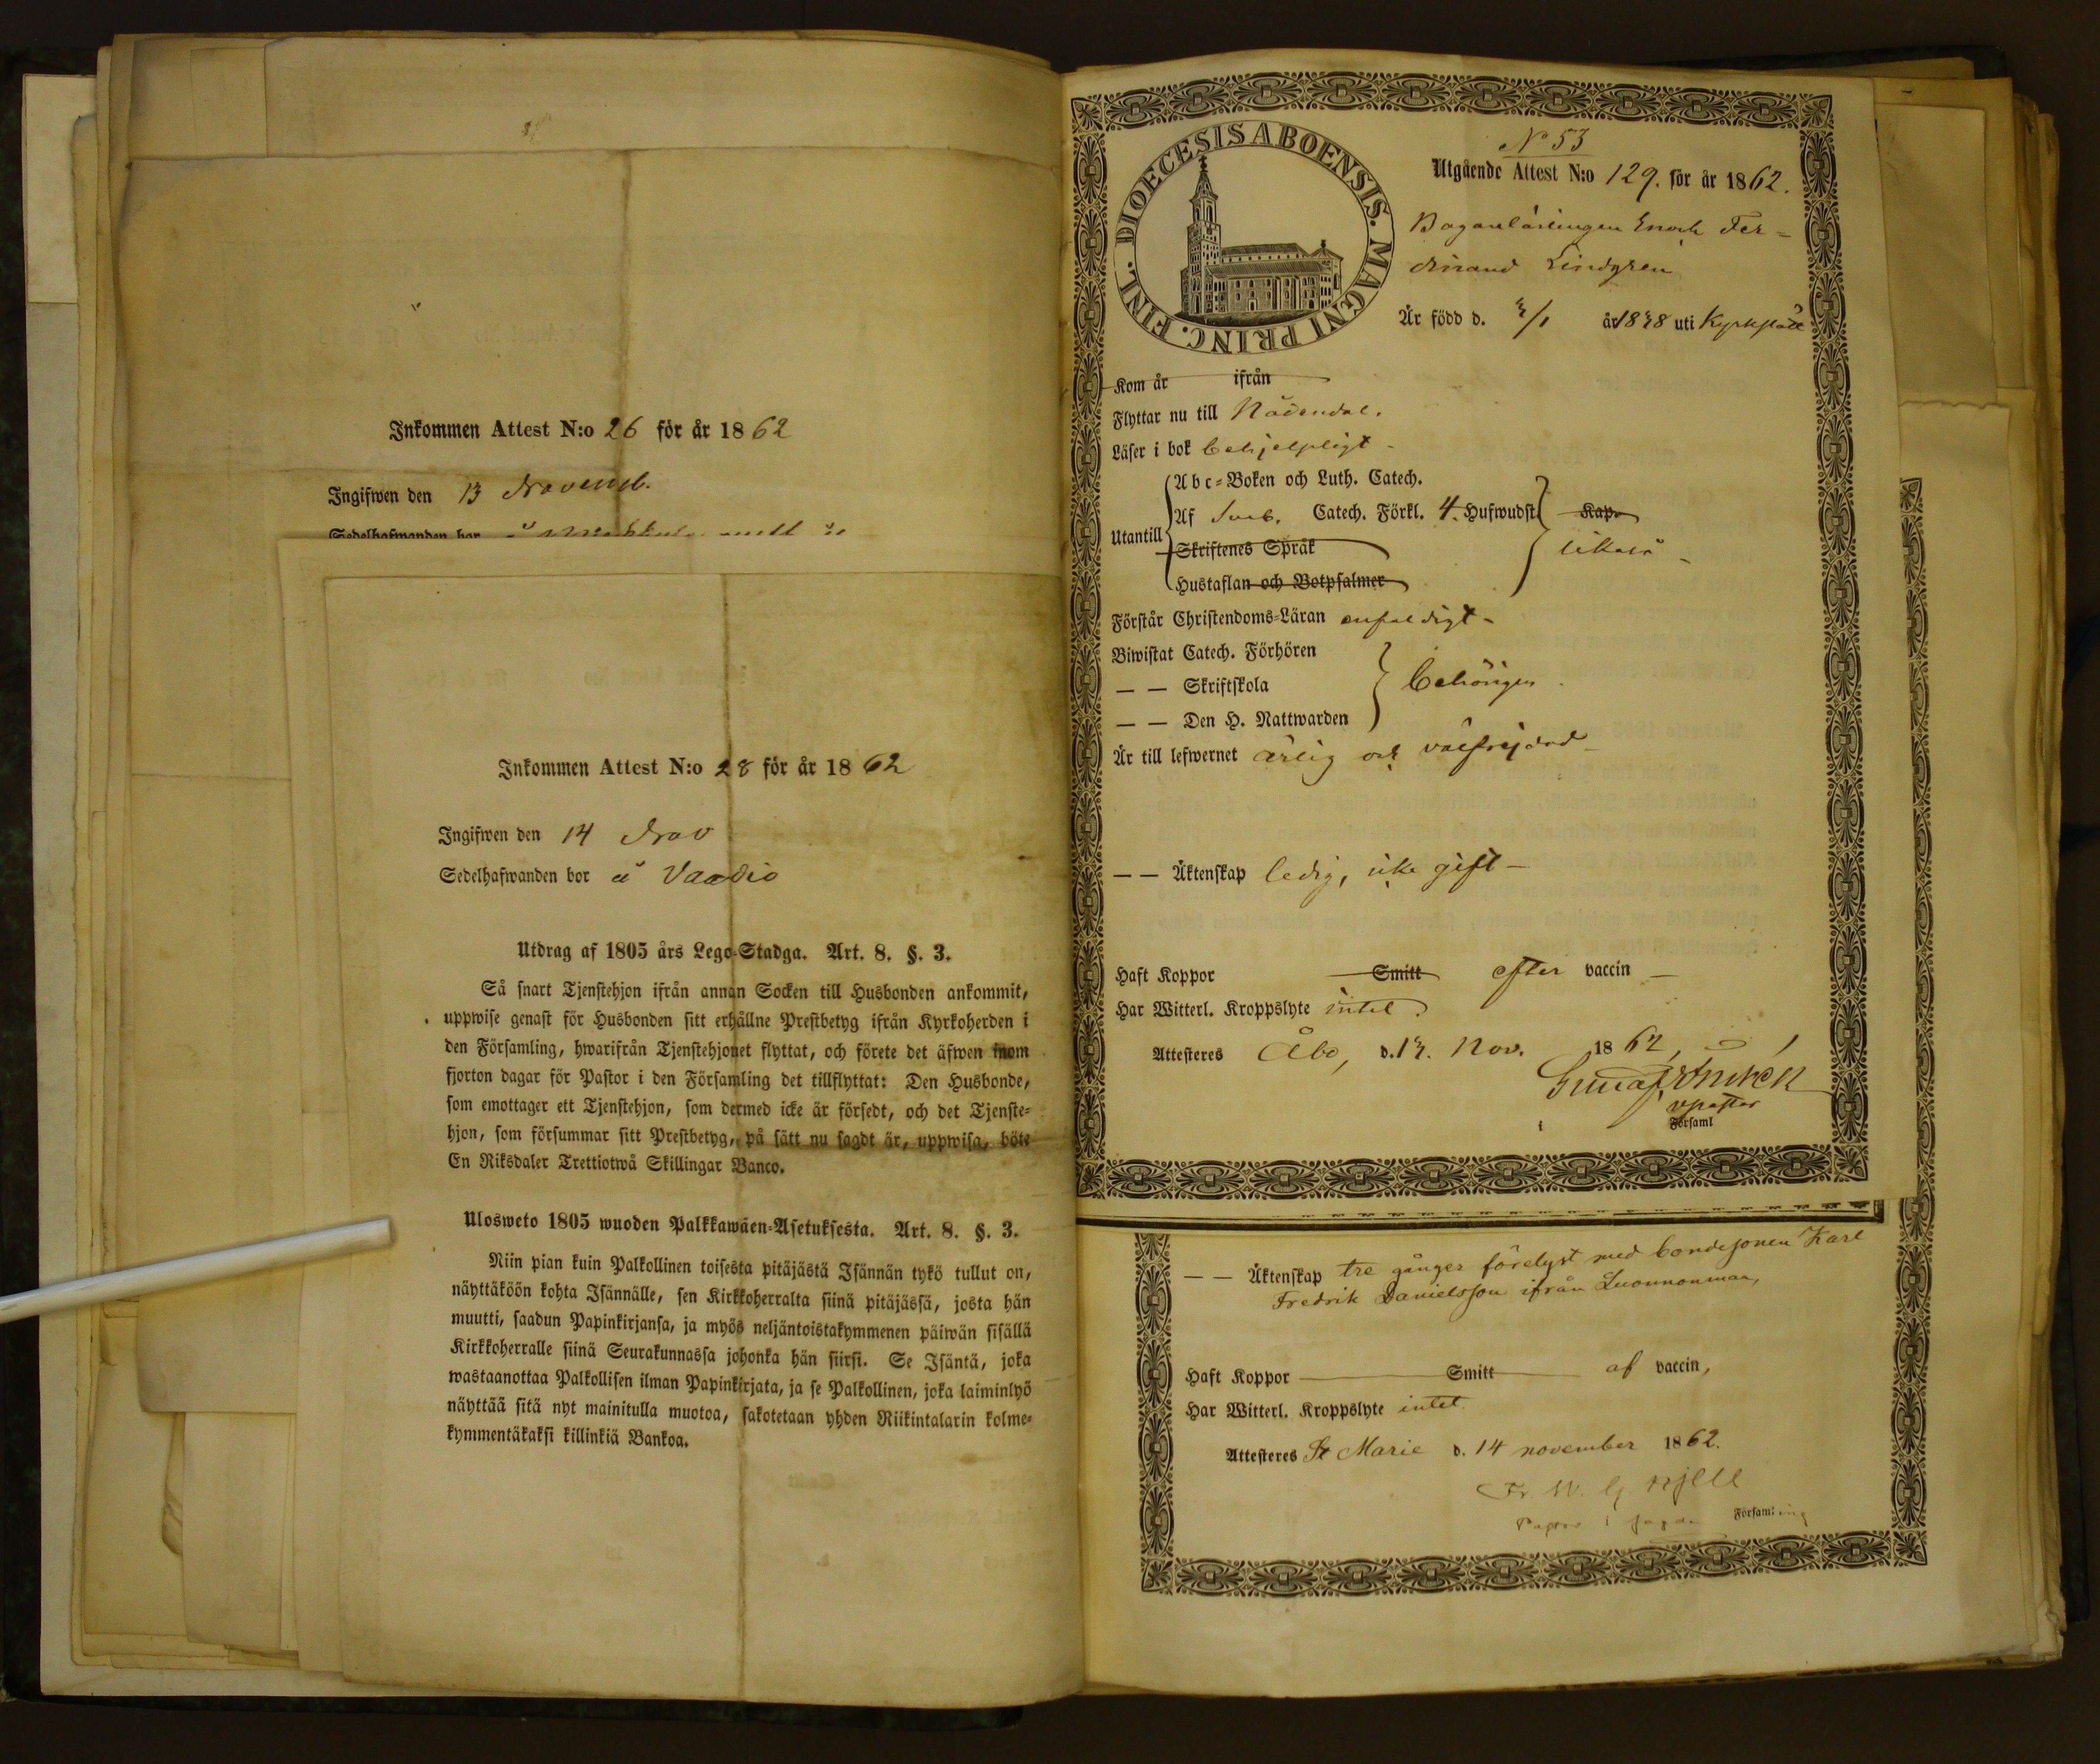 Inkommen Attest N:o 26 för år 1862
Ingifwen den 13 Novemb.
Sedelhafwanden bor å
Inkommen Attest N:o 28 för år 1862
Ingifwen den 14 Nov
Sedelhafwanden bor å Vaadio
Utdrag af 1805 års Lego-Stadga. Art. 8. §. 3.
Så snart Tjenstehjon ifrån annan Socken till Husbonden ankommit,
uppwise genast för Husbonden sitt erhållne Prestbetyg ifrån Kyrkoherden i
den Församling, hwarifrån Tjenstehjonet flyttat, och förete det äfwen inom
fjorton dagar för Pastor i den Församling det tillflyttat: Den Husbonde,
som emottager ett Tjenstehjon, som dermed icke är försedt, och det Tjenste-
hjon, som försummar sitt Prestbetyg, på sätt nu sagdt är, uppwisa, böte
En Riksdaler Trettiotwå Skillingar Banco.
Ulosweto 1805 wuoden Palkkawäen-Asetuksesta. Art. 8. §. 3.
Niin pian kuin Palkollinen toisesta pitäjästä Isännän tykö tullut on,
näyttäköön kohta Isännälle, sen Kirkkoherralta siinä pitäjässä, josta hän
muutti, saadun Papinkirjansa, ja myös neljäntoistakymmenen päiwän sisällä
Kirkkoherralle siinä Seurakunnassa johonka hän siirsi. Se Isäntä, joka
wastaanottaa Palkollisen ilman Papinkirjata, ja se Palkollinen, joka laiminlyö
näyttää sitä nyt mainitulla muotoa, sakotetaan yhden Riikintalarin kolme-
kymmentäkaksi killinkiä Bankoa.
DIOECESIS ABOENSIS. MAGNI PRINC. FINL.
N 53
Utgående Attest N:o 129. för år 1862.
Bagarelärlingen Enoch Fer=
dinand Lindgren
Är född d. 3/1 år 1838 uti Kyrkslätt
Kom år ifrån
Flyttar nu till Nådendal.
Läser i bok behjelpligt
Abc-Boken och Luth. Catech.
Utantill Af Sveb. Catech. Förkl. 4. Hufwudst. Kap.
likaså
Skriftenes Språk
Hustaflan och Botpsalmer
Förstår Christendoms-Läran enfaldigt
Biwistat Catech. Förhören
— — Skriftskola behörigen
— — Den H. Nattwarden
Är till lefwernet ärlig och välfrejdad
— — Äktenskap ledig, icke gift
Haft Koppor Smitt efter vaccin
Har Witterl. Kroppslyte intet.
Attesteres Åbo, d. 13. Nov. 1862,
vpastor
i Församl
— — Äktenskap tre gånger förelyst med bondesonen Karl
Fredrik Danielsson ifrån Luonnonmaa,
Haft Koppor Smitt af vaccin,
Har Witterl. Kroppslyte intet
Attesteres St Marie d. 14 november 1862.
Fr. W. G Hjelt
Pastor i sagda Församling